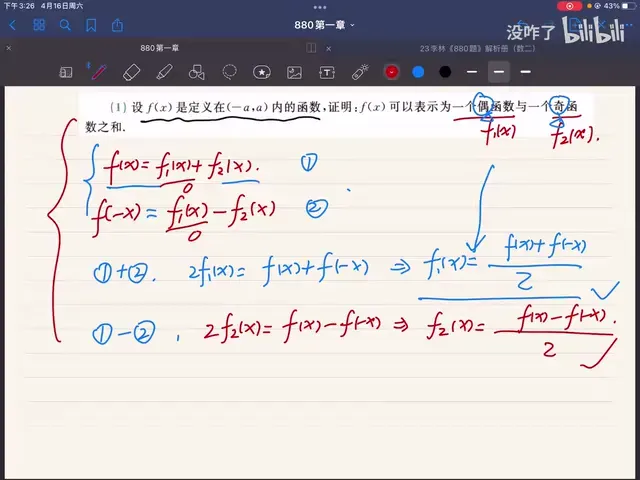 下午3:26 4月16日周六
43%
880第一章
没咋了 bilibili
880第一章
23李林《880题》解析册(数二)
(1) 设 f(x) 是定义在(-a,a) 内的函数,证明:f(x) 可以表示为一个偶函数与一个奇函
数之和.
f₁(x) f₂(x).
f(x) = f₁(x) + f₂(x). ①
f(-x) = f₁(x) - f₂(x) ②
①+②. 2f₁(x) = f(x)+f(-x) ⇒ f₁(x) = (f(x)+f(-x))/2
①-②, 2f₂(x) = f(x)-f(-x) ⇒ f₂(x) = (f(x)-f(-x))/2